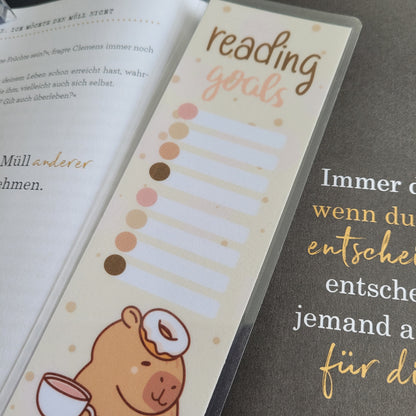 DU MÖCHTE DEN MÜLL NICHT
Früchte sein?«, fragte Clemens immer noch
deinem Leben schon erreicht hast, wahr-
ihn, vielleicht auch sich selbst.
Gilt auch überleben?«
Müll anderer
ehmen.
reading
goals
Immer d
wenn du
entschei
entsche
jemand a
für di